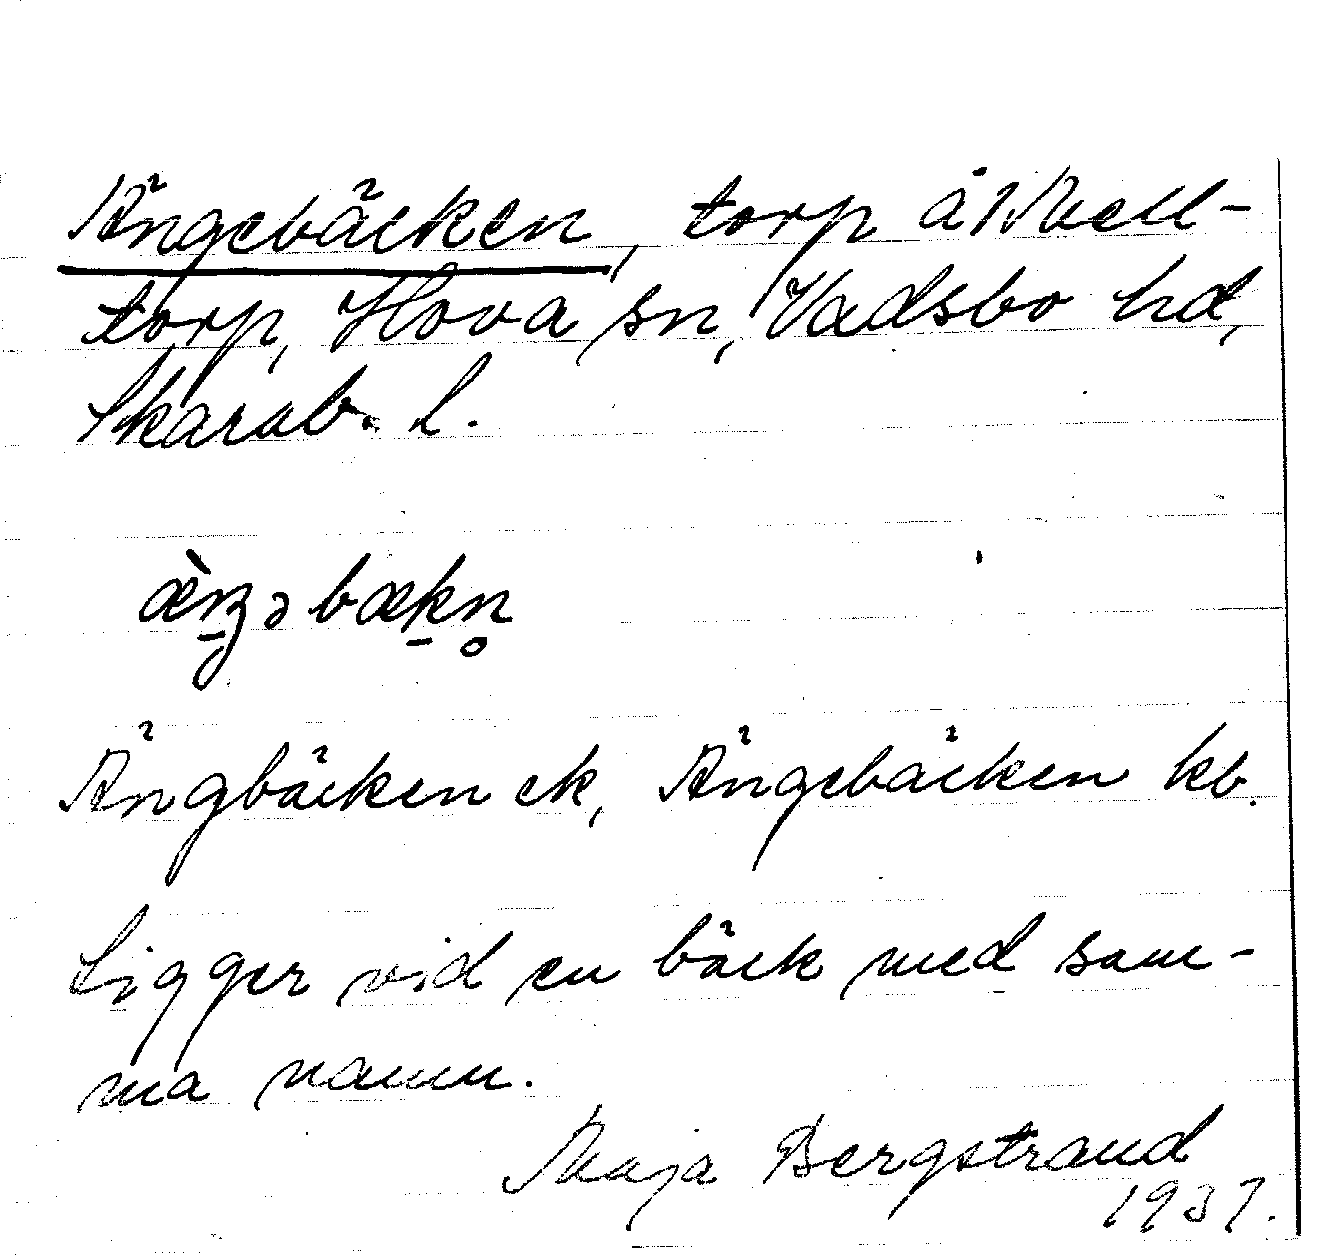 Ängebäcken, torp å Mell-
torp, Hova sn, Vadsbo hd,
Skarab. l.
æ̀ŋəbækn̥
Ängbäcken ek, Ängebäcken kb.
Ligger vid en bäck med sam-
ma namn.
Maja Bergstrand
1937.